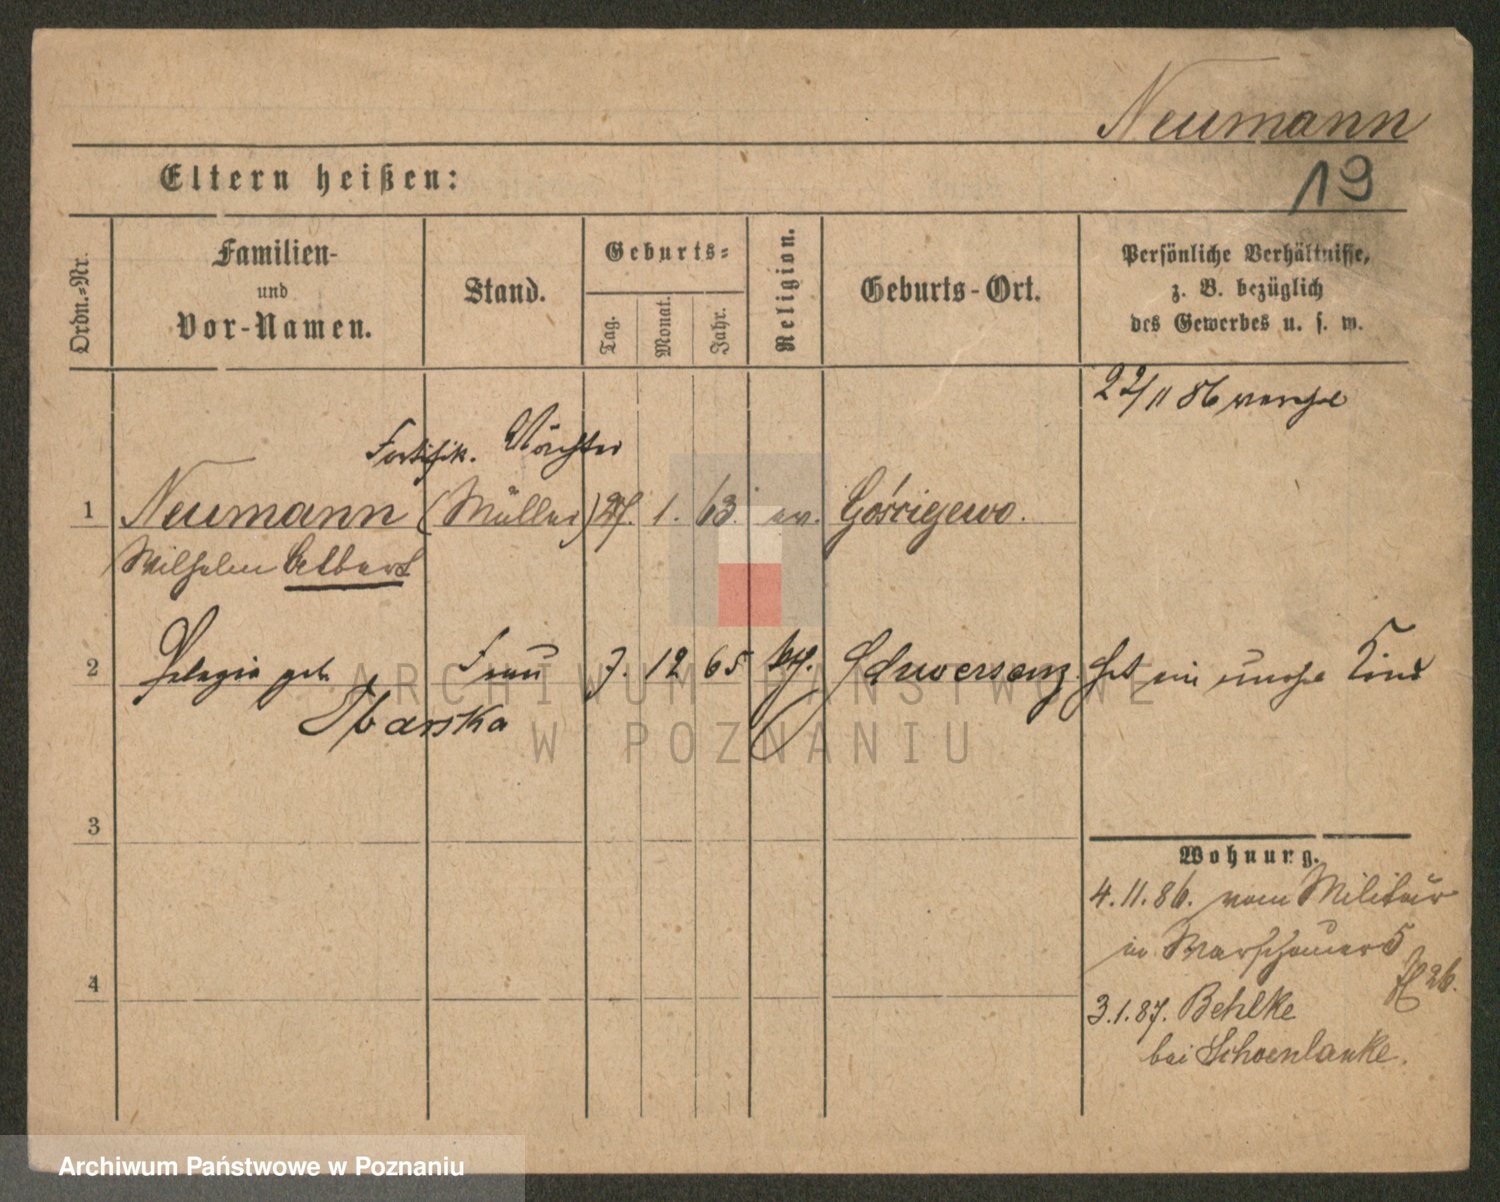 Neumann
19
Eltern heißen:
Ordn.-Nr.
Familien-
und
Vor-Namen.
Stand.
Geburts-
Tag.
Monat.
Jahr.
Religion.
Geburts-Ort.
Persönliche Verhältnisse,
z. B. bezüglich
des Gewerbes u. s. w.
22/11 86
Fortifik. Wächter
1 Neumann (Müller) 27. 1. 63. ev. Górrigewo.
Wilhelm Albert
2 Pelagia geb. Frau 7. 12 65 kth. Schwersenz. Hat ein unehe Kind
3
Wohnung.
4.11.86. vom Militär
in Warschauer 5
4
26.
3.1.87. Behlke
bei Schoenlanke.
ARCHIWUM PAŃSTWOWE
W POZNANIU
Archiwum Państwowe w Poznaniu